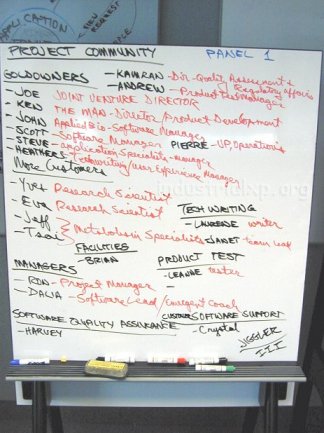 APPLICATION
NEW
REQUEST
PROJECT COMMUNITY
PANEL 1
GOLDOWNERS
- KAMRAN - Dir-Quality Assessment & Regulatory affairs
- ANDREW - Product Test Manager
- JOE JOINT VENTURE DIRECTOR
- KEN THE MAN-Director/Product Development
- JOHN Applied Bio-Software Manager
- SCOTT - Software Manager
PIERRE - VP, Operations
- STEVE - application Specialists-manager
- HEATHERS - Techwriting/User Experience Manager
More Customers
- Yves Research Scientist
- Eva Research Scientist
- Jeff
- Tsai
Metabolism Specialists
TECH WRITING
- LAURENSE writer
- JANET team lead
FACILITIES
- BRIAN
PRODUCT TEST
- LEANNE tester
-
MANAGERS
- RON - Project Manager
- DALIA - Software Lead/emergent coach
SOFTWARE QUALITY ASSURANCE
- HARVEY
CUSTOMER SOFTWARE SUPPORT
- Crystal
JIGGLER III
industrialxp.org